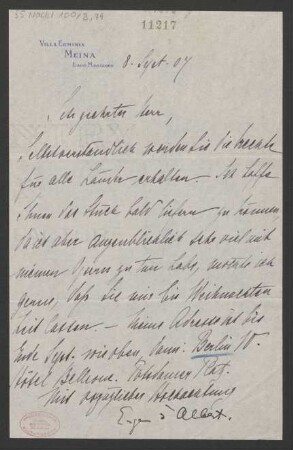 11217
Villa Erminia
Meina
Lago Maggiore
8. Sept. 07
Sehr geehrter Herr,
Selbstverständlich werden Sie die Rechte
für alle Länder erhalten. Ich hoffe
Ihnen das Stück bald liefern zu können
Da ich aber augenblicklich sehr viel mit
meinen Opern zu tun habe, möchte ich
gerne, daß Sie mir bis Weihnachten
Zeit lassen. — Meine Adresse ist bis
Ende Sept. wie oben, dann: Berlin W.
Hôtel Bellevue. Potsdamer Platz.
Mit vorzüglicher Hochachtung
Eugen d'Albert.